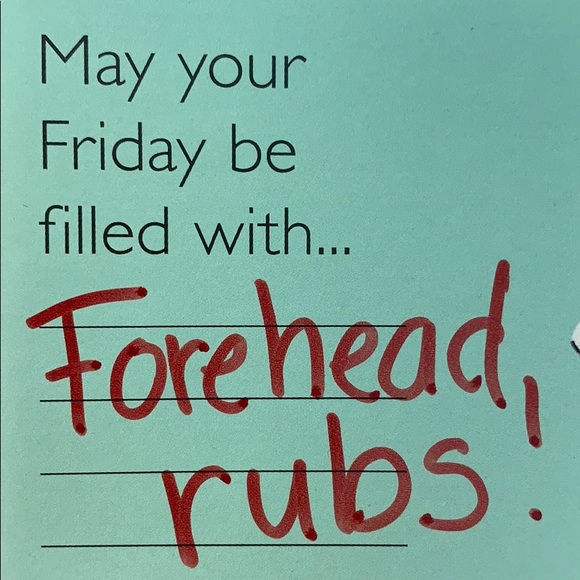 May your
Friday be
filled with...
Forehead
rubs!